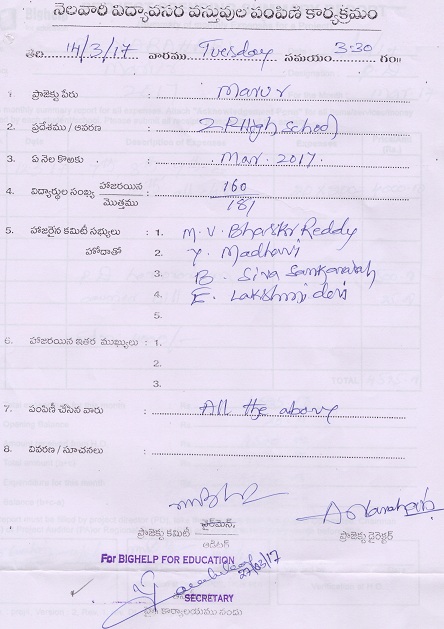 నెలవారి విద్యావసర వస్తువుల పంపిణి కార్యక్రమం
తేది 14/3/17 వారము Tuesday సమయం 3:30 గం॥
1. ప్రాజెక్టు పేరు : Marur
2. ప్రదేశము / ఆవరణ : ZPHigh School
3. ఏ నెల కొఱకు : Mar. 2017.
4. విద్యార్థుల సంఖ్య హాజరయిన : 160
మొత్తము 181
5. హాజరైన కమిటీ సభ్యులు : 1. M.V. Bhaskr Reddy
హోదాతో 2. Y. Madhavi
3. B. Siva Sankaraiah
4. E. Lakshmi devi
5.
6. హాజరయిన ఇతర ముఖ్యులు : 1.
2.
3.
7. పంపిణీ చేసిన వారు : All the above
8. వివరణ / సూచనలు :
ప్రాజెక్టు కమిటీ ఛైర్మెన్
ఆడిటర్
ప్రాజెక్టు డైరెక్టర్
For BIGHELP FOR EDUCATION
27/03/17
SECRETARY
కార్యాలయము నందు